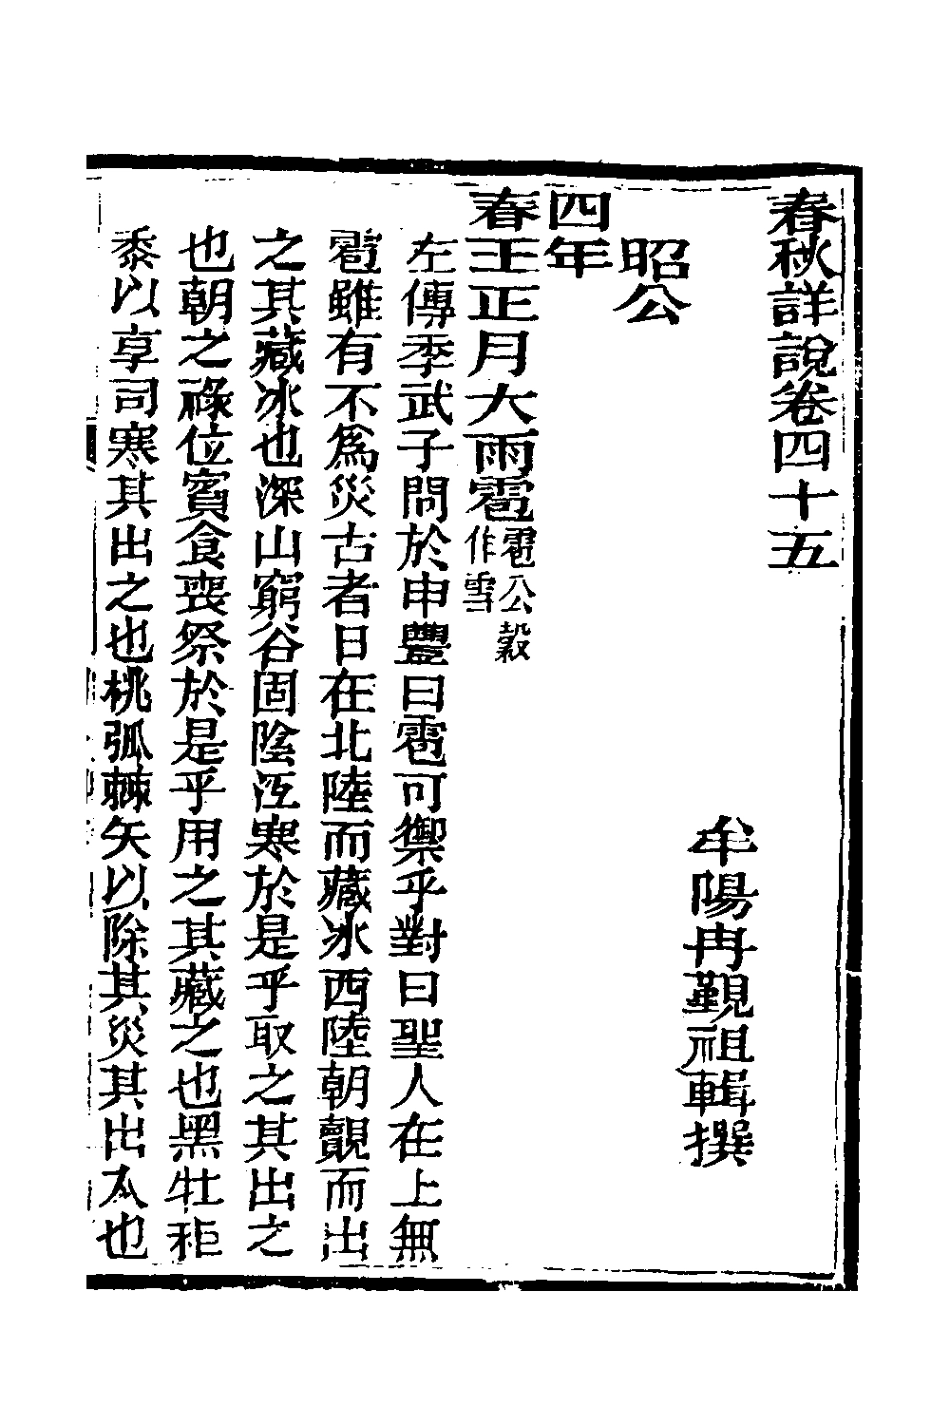 春秋詳說卷四十五
牟陽冉覲祖輯撰
昭公
四年
春王正月大雨雹雹公穀作雪
左傳季武子問於申豐曰雹可禦乎對曰聖人在上無
雹雖有不為災古者日在北陸而藏冰西陸朝覿而出
之其藏冰也深山窮谷固陰沍寒於是乎取之其出之
也朝之祿位賓食喪祭於是乎用之其藏之也黑牡秬
黍以享司寒其出之也桃弧棘矢以除其災其出入也